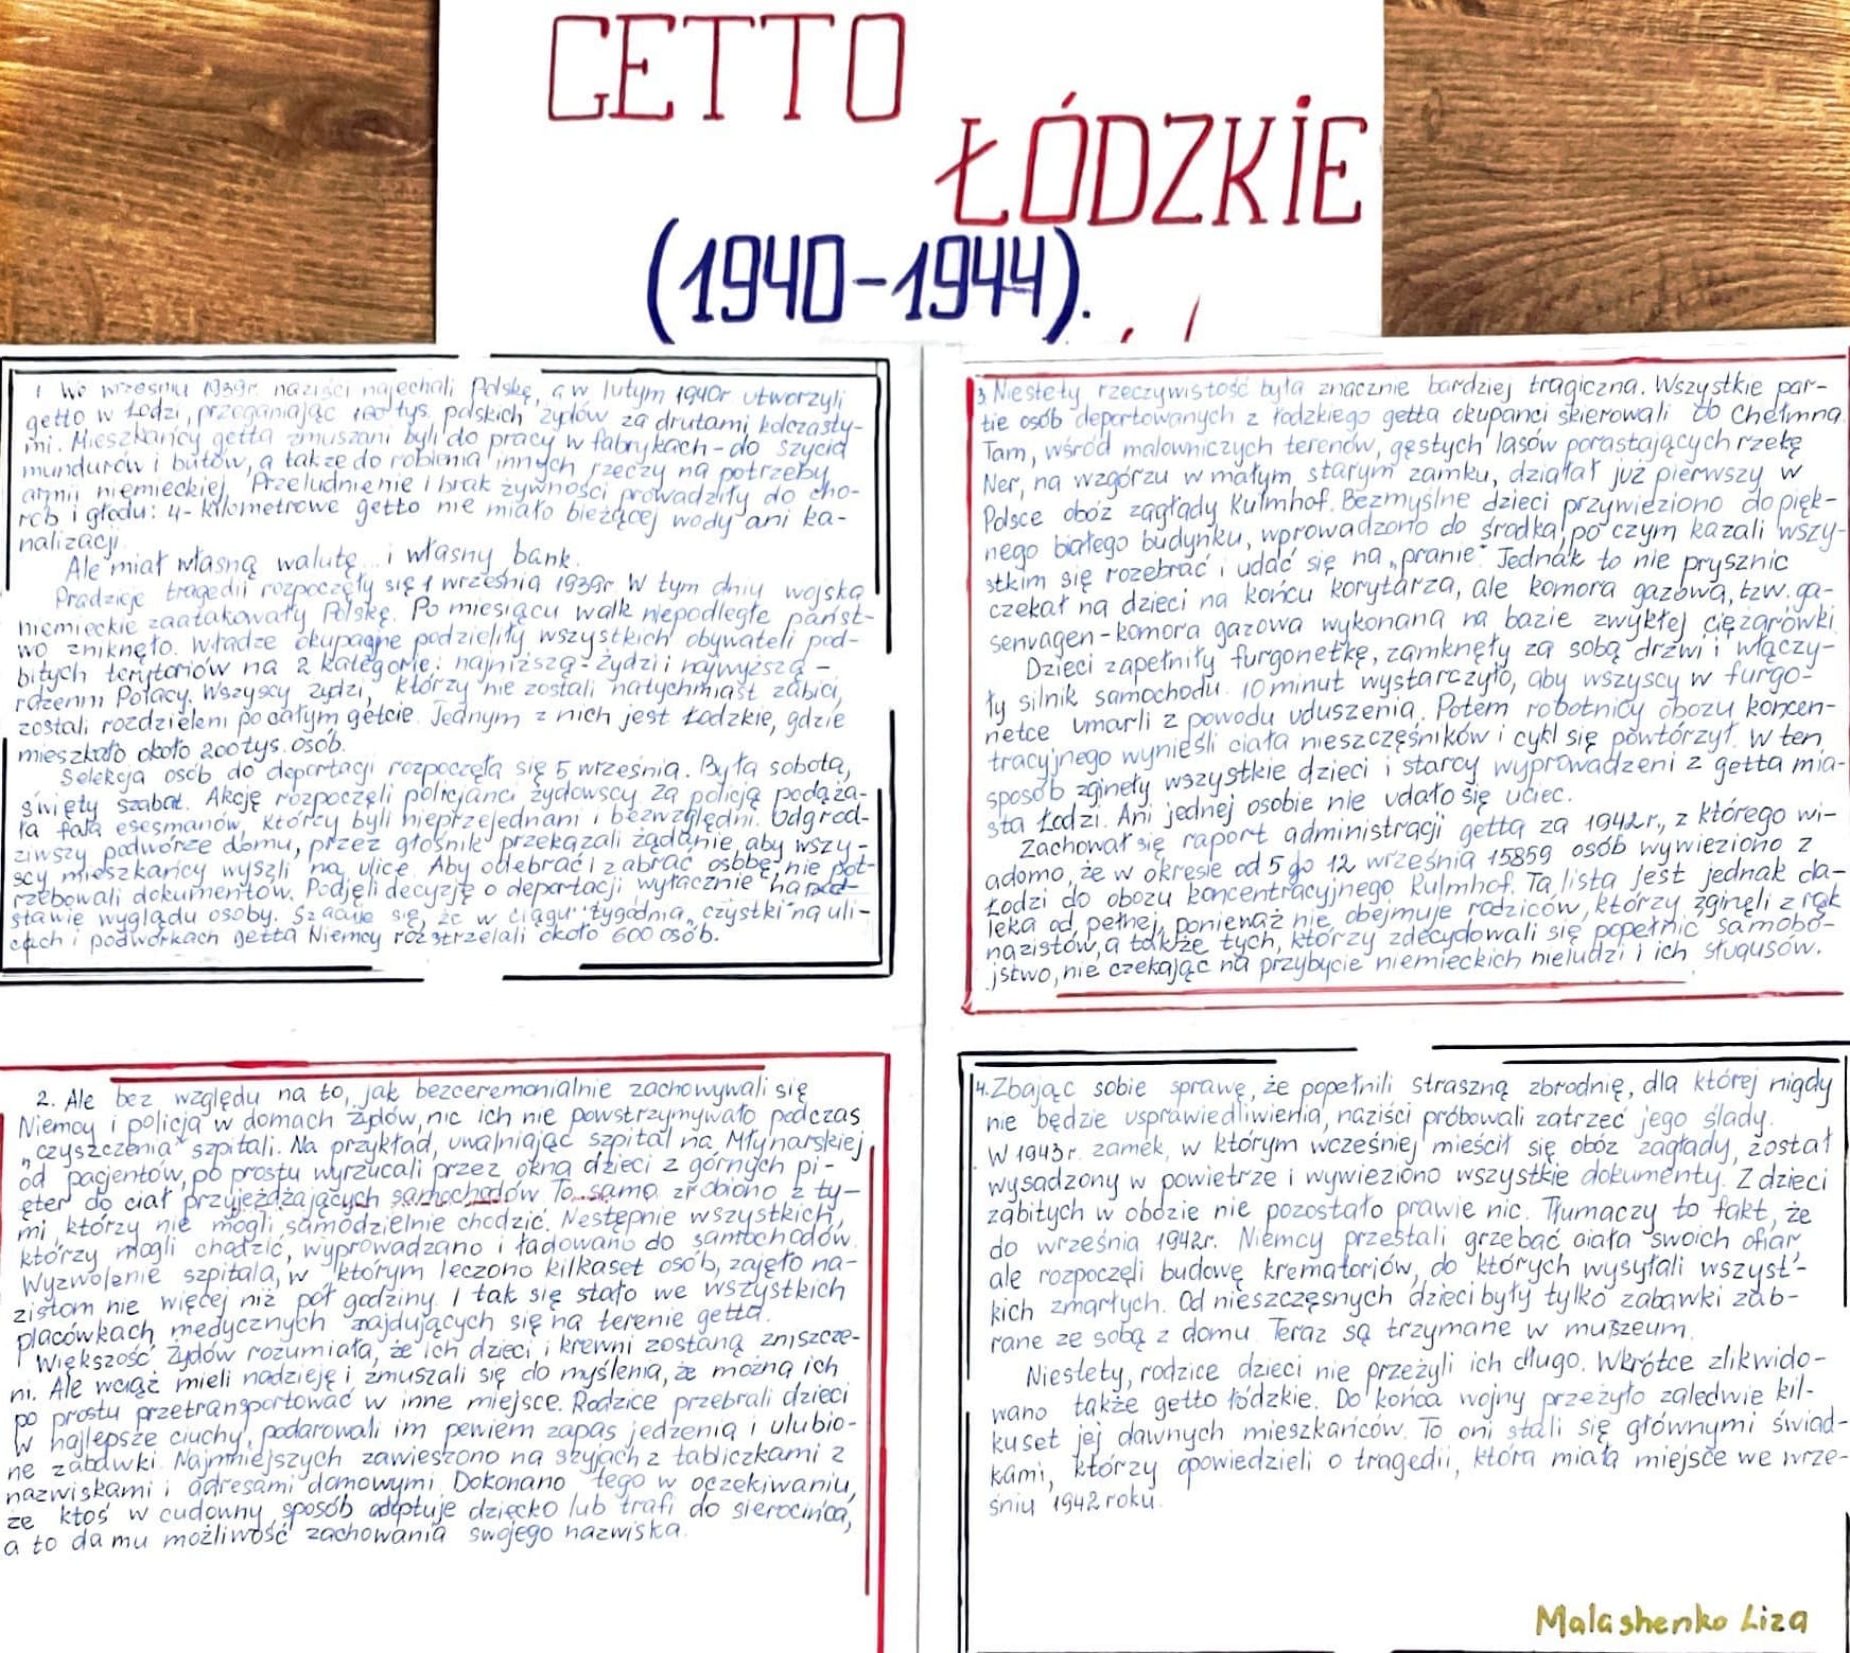 GETTO
ŁÓDZKIE
(1940-1944).
1 We wrześniu 1939r. naziści najechali Polskę, a w lutym 1940r utworzyli
getto w Łodzi, przeganiając tys. polskich żydów za drutami kolczasty-
mi. Mieszkańcy getta zmuszani byli do pracy w fabrykach - do szycia
mundurów i butów, a także do robienia innych rzeczy na potrzeby
armii niemieckiej. Przeludnienie i brak żywności prowadziły do cho-
rób i głodu: 4-kilometrowe getto nie miało bieżącej wody ani ka-
nalizacji.
Ale miał własną walutę... i własny bank.
Pradzieje tragedii rozpoczęły się 1 września 1939r W tym dniu wojska
niemieckie zaatakowały Polskę. Po miesiącu walk niepodległe państ-
wo zniknęło. Władze okupacyjne podzieliły wszystkich obywateli pod-
bitych terytoriów na 2 kategorie: najniższą - Żydzi i najwyższą -
rdzenni Polacy. Wszyscy żydzi, którzy nie zostali natychmiast zabici,
zostali rozdzieleni po całym getcie. Jednym z nich jest Łodzkie, gdzie
mieszkało około 200 tys. osób.
Selekcja osób do deportacji rozpoczęła się 5 września. Była sobota,
święty szabat. Akcję rozpoczęli policjanci żydowscy za policją podąża-
ła fala esesmanów, którzy byli nieprzejednani i bezwzględni. Odgrod-
ziwszy podwórze domu, przez głośnik przekazali żądanie, aby wszy-
scy mieszkańcy wyszli na ulicę. Aby odebrać i zabrać osobę, nie pot-
rzebowali dokumentów. Podjęli decyzję o deportacji wyłącznie na pod-
stawie wyglądu osoby. Szacuje się, że w ciągu tygodnia „czystki" na uli-
cach i podwórkach getta Niemcy rozstrzelali około 600 osób.
2. Ale bez względu na to, jak bezceremonialnie zachowywali się
Niemcy i policja w domach żydów, nic ich nie powstrzymywało podczas
„czyszczenia" szpitali. Na przykład, uwalniając szpital na Młynarskiej
od pacjentów, po prostu wyrzucali przez okna dzieci z górnych pi-
ęter do ciał przyjeżdżających samochodów. To samo zrobiono z ty-
mi, którzy nie mogli samodzielnie chodzić. Nestępnie wszystkich,
którzy mogli chodzić, wyprowadzano i ładowano do samochodów.
Wyzwolenie szpitala, w którym leczono kilkaset osób, zajęło na-
zistom nie więcej niż pół godziny. I tak się stało we wszystkich
placówkach medycznych znajdujących się na terenie getta.
Większość Żydów rozumiała, że ich dzieci i krewni zostaną zniszcze-
ni. Ale wciąż mieli nadzieję i zmuszali się do myślenia, że można ich
po prostu przetransportować w inne miejsce. Rodzice przebrali dzieci
w najlepsze ciuchy, podarowali im pewiem zapas jedzenia i ulubio-
ne zabawki. Najmniejszych zawieszono na szyjach z tabliczkami z
nazwiskami i adresami domowymi. Dokonano tego w oczekiwaniu,
że ktoś w cudowny sposób adoptuje dziecko lub trafi do sierocińca,
a to da mu możliwość zachowania swojego nazwiska.
3 Niestety rzeczywistość była znacznie bardziej tragiczna. Wszystkie par-
tie osób deportowanych z łodzkiego getta okupanci skierowali do Chełmna.
Tam, wśród malowniczych terenów, gęstych lasów porastających rzekę
Ner, na wzgórzu w małym starym zamku, działał już pierwszy w
Polsce obóz zagłady Kulmhof. Bezmyślne dzieci przywieziono do pięk-
nego białego budynku, wprowadzono do środka, po czym kazali wszy-
stkim się rozebrać i udać się na „pranie". Jednak to nie prysznic
czekał na dzieci na końcu korytarza, ale komora gazowa, tzw. ga-
senvagen - komora gazowa wykonana na bazie zwykłej ciężarówki.
Dzieci zapełniły furgonetkę, zamknęły za sobą drzwi i włączy-
ły silnik samochodu. 10 minut wystarczyło, aby wszyscy w furgo-
netce umarli z powodu uduszenia. Potem robotnicy obozu koncen-
tracyjnego wynieśli ciała nieszczęśników i cykl się powtórzył. W ten
sposób zginęły wszystkie dzieci i starcy wyprowadzeni z getta mia-
sta Łodzi. Ani jednej osobie nie udało się uciec.
Zachował się raport administracji getta za 1942r., z którego wi-
adomo, że w okresie od 5 do 12 września 15859 osób wywieziono z
Łodzi do obozu koncentracyjnego Kulmhof. Ta lista jest jednak da-
leka od pełnej, ponieważ nie obejmuje rodziców, którzy zginęli z rąk
nazistów, a także tych, którzy zdecydowali się popełnić samobó-
jstwo, nie czekając na przybycie niemieckich nieludzi i ich sługusów.
4. Zbając sobie sprawę, że popełnili straszną zbrodnię, dla której nigdy
nie będzie usprawiedliwienia, naziści próbowali zatrzeć jego ślady.
W 1943r. zamek, w którym wcześniej mieścił się obóz zagłady, został
wysadzony w powietrze i wywieziono wszystkie dokumenty. Z dzieci
zabitych w obozie nie pozostało prawie nic. Tłumaczy to fakt, że
do września 1942r. Niemcy przestali grzebać ciała swoich ofiar,
ale rozpoczęli budowę krematoriów, do których wysyłali wszyst-
kich zmarłych. Od nieszczęsnych dzieci były tylko zabawki zab-
rane ze sobą z domu. Teraz są trzymane w muszeum.
Niestety, rodzice dzieci nie przeżyli ich długo. Wkrótce zlikwido-
wano także getto łódzkie. Do końca wojny przeżyło zaledwie kil-
kuset jej dawnych mieszkańców. To oni stali się głównymi świad-
kami, którzy opowiedzieli o tragedii, która miała miejsce we wrze-
śniu 1942 roku.
Malashenko Liza